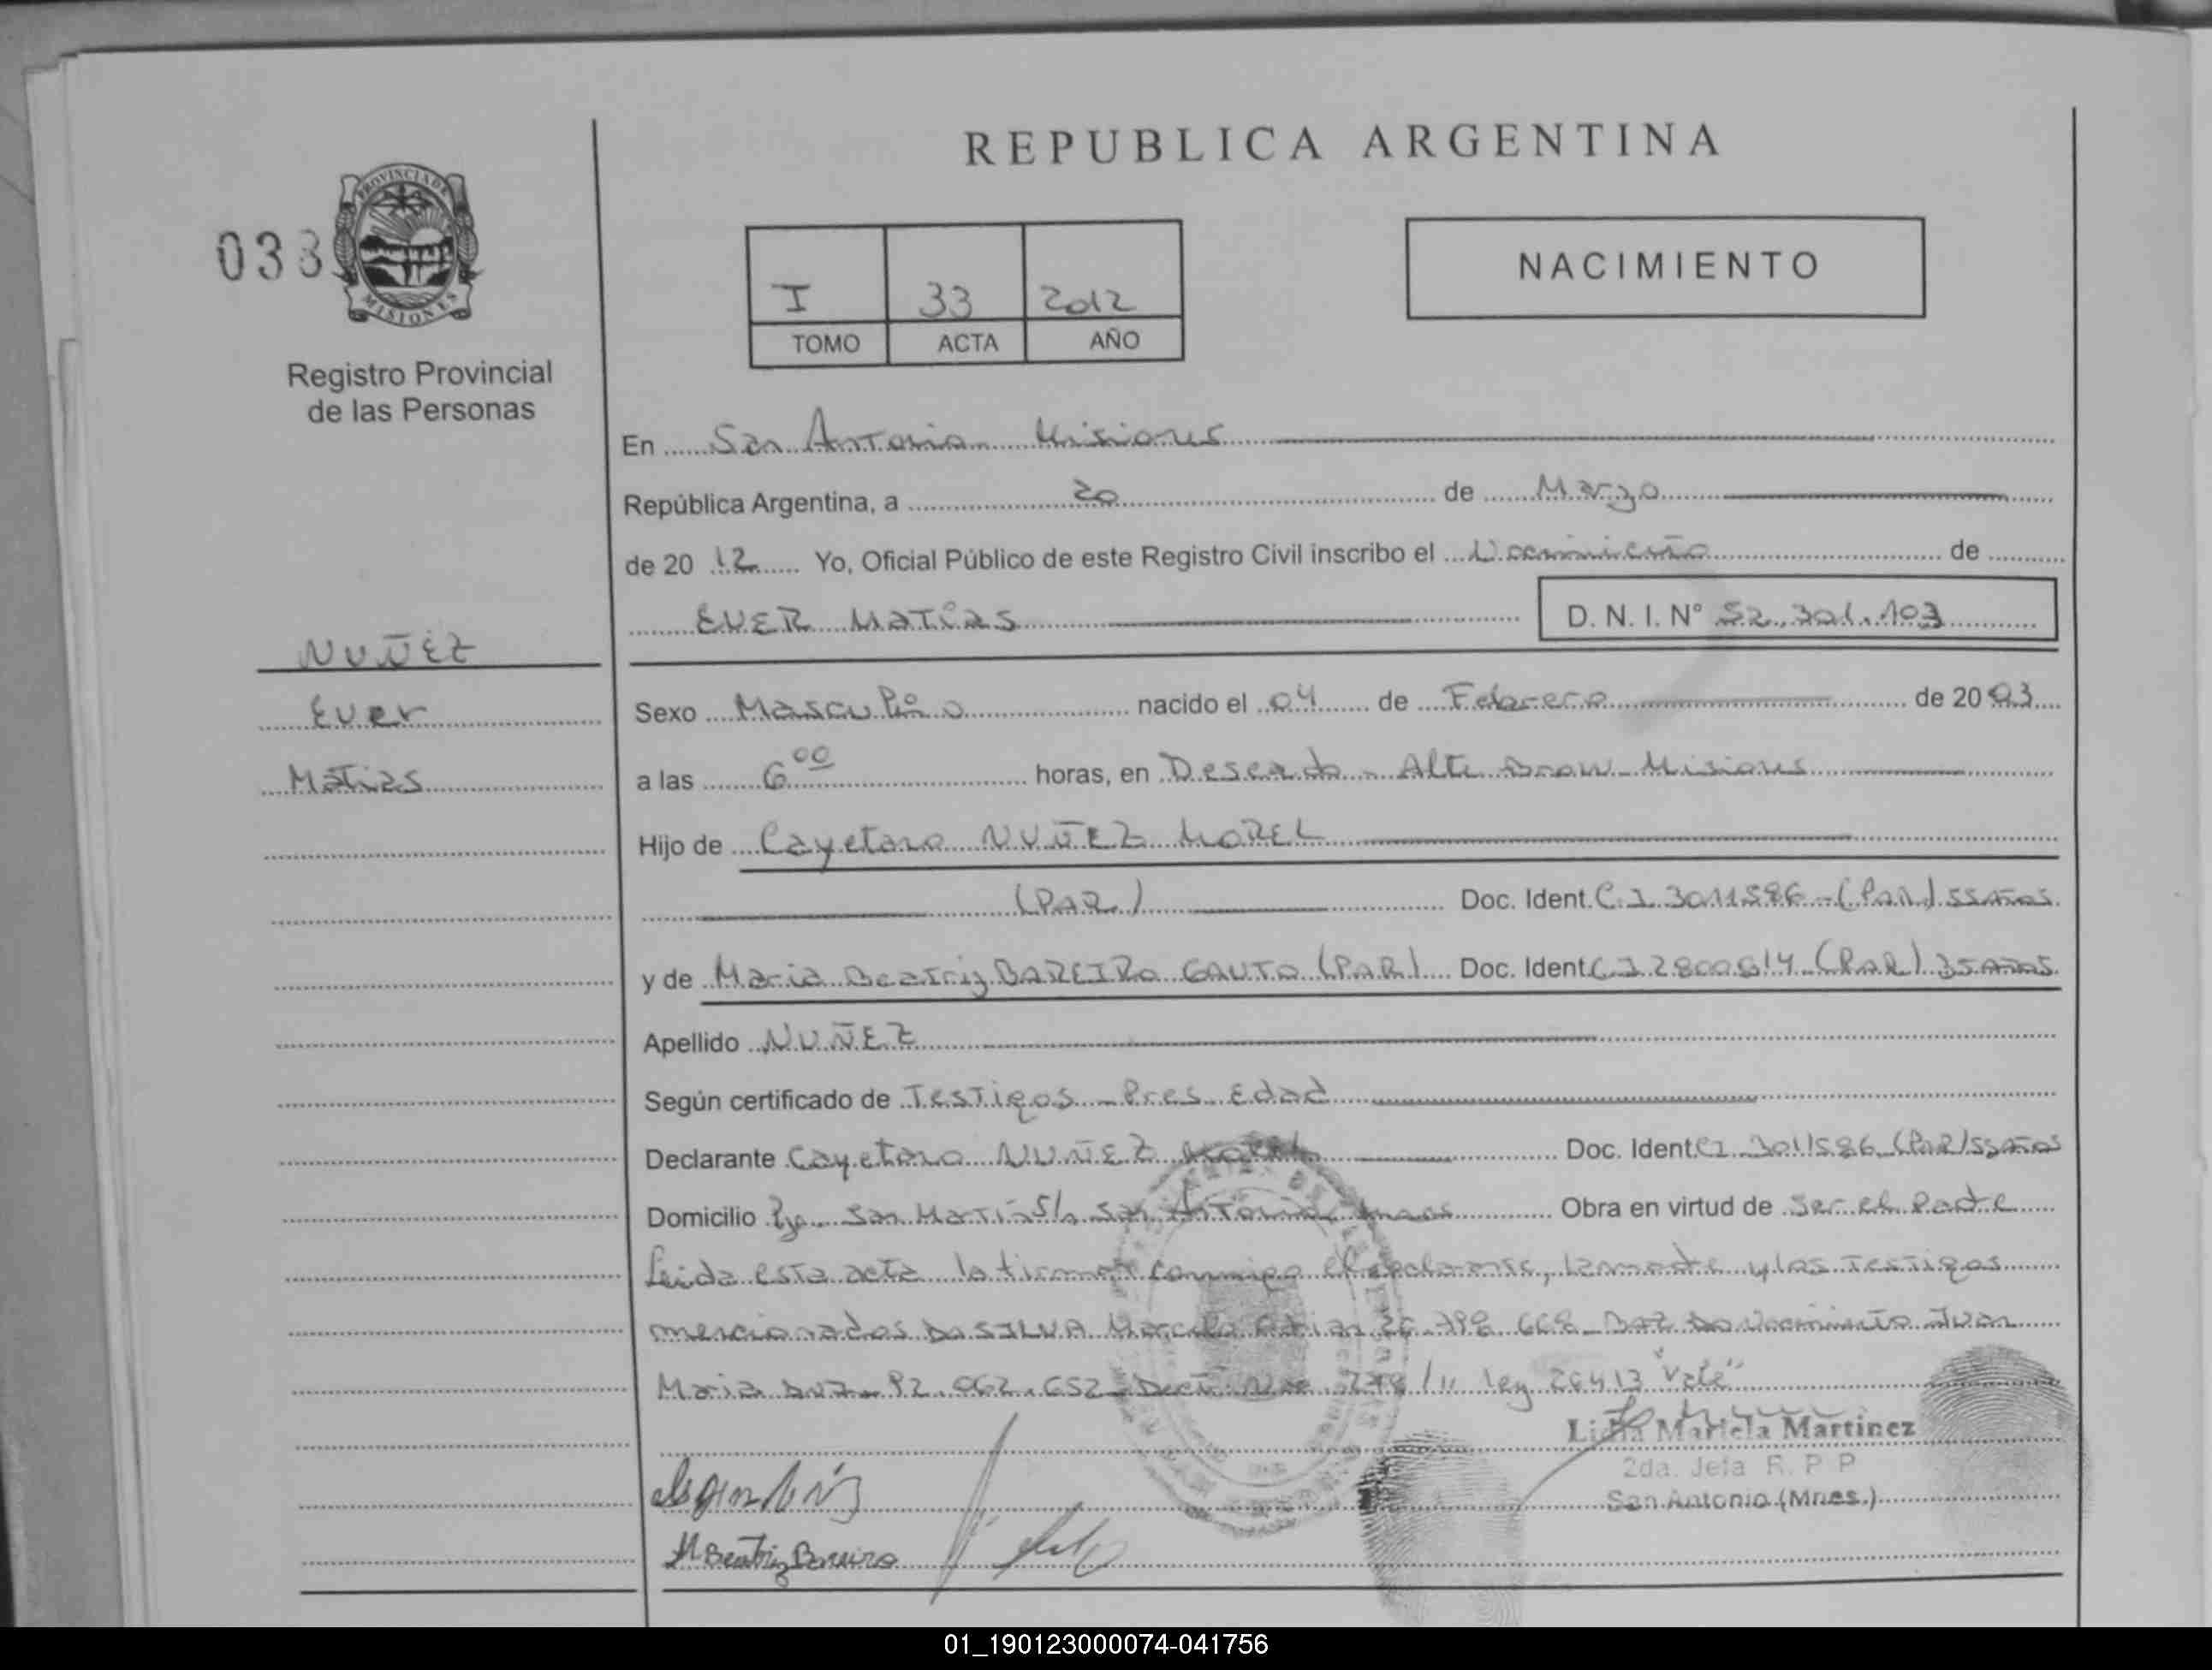 REPUBLICA ARGENTINA
033
PROVINCIA DE
MISIONES
Registro Provincial
de las Personas
I 33 2012
TOMO ACTA AÑO
NACIMIENTO
En San Antonio Misiones
República Argentina, a 20 de Marzo
de 20 12 Yo, Oficial Público de este Registro Civil inscribo el Nacimiento de
EVER MATIAS D. N. I. N° 52.301.103
NUÑEZ
Ever
Matias
Sexo Masculino nacido el 04 de Febrero de 20 03
a las 6 00 horas, en Deseado - Alte Brow - Misiones
Hijo de Cayetano NUÑEZ MOREL
(PAR) Doc. Ident. C.I. 3011586 - (PAR) 55 Años
y de Maria Beatriz BAREIRO GAUTO (PAR) Doc. Ident C.I 2800814 (PAR) 35 Años
Apellido NUÑEZ
Según certificado de Testigos - Pres. Edad
Declarante Cayetano NUÑEZ MOREL Doc. Ident CI 3011586 (PAR) 55 Años
Domicilio San Martin S/n San Antonio Obra en virtud de ser el Padre
Leida esta acta la firman conmigo el declarante, la madre y los testigos
mencionados DA SILVA Marcelo 668 Nacimiento Juan
Maria 92.062.652 278/11 Ley 26413 "Vale"
Lidia Mariela Martinez
2da. Jefa R. P. P
San Antonio (Mnes.)
M Beatriz Bareiro
01_190123000074-041756